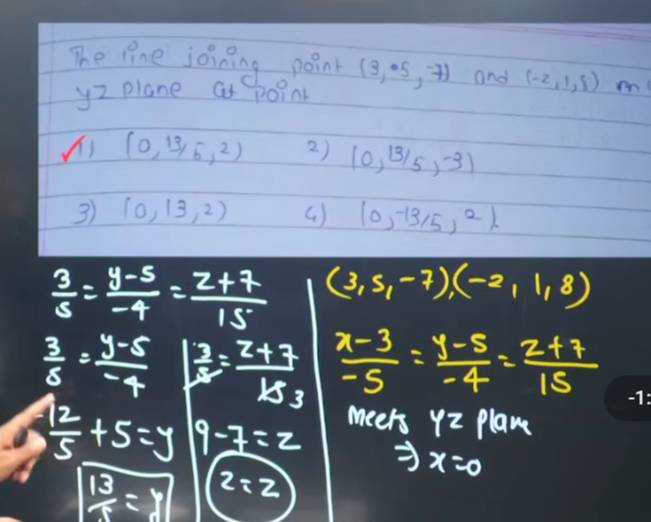 The line joining point (3, 5, -7) and (-2, 1, 8) m
yz plane at point
✓1) (0, 13/5, 2) 2) (0, 13/5, -3)
3) (0, 13, 2) 4) (0, -13/5, 2)
3/5 = y-5/-4 = z+7/15
3/5 = y-5/-4
-12/5 + 5 = y
13/5 = y
3/5 = z+7/15 3
9-7 = z
2 = z
(3, 5, -7), (-2, 1, 8)
x-3/-5 = y-5/-4 = z+7/15
meets yz plane
⇒ x=0
-1: